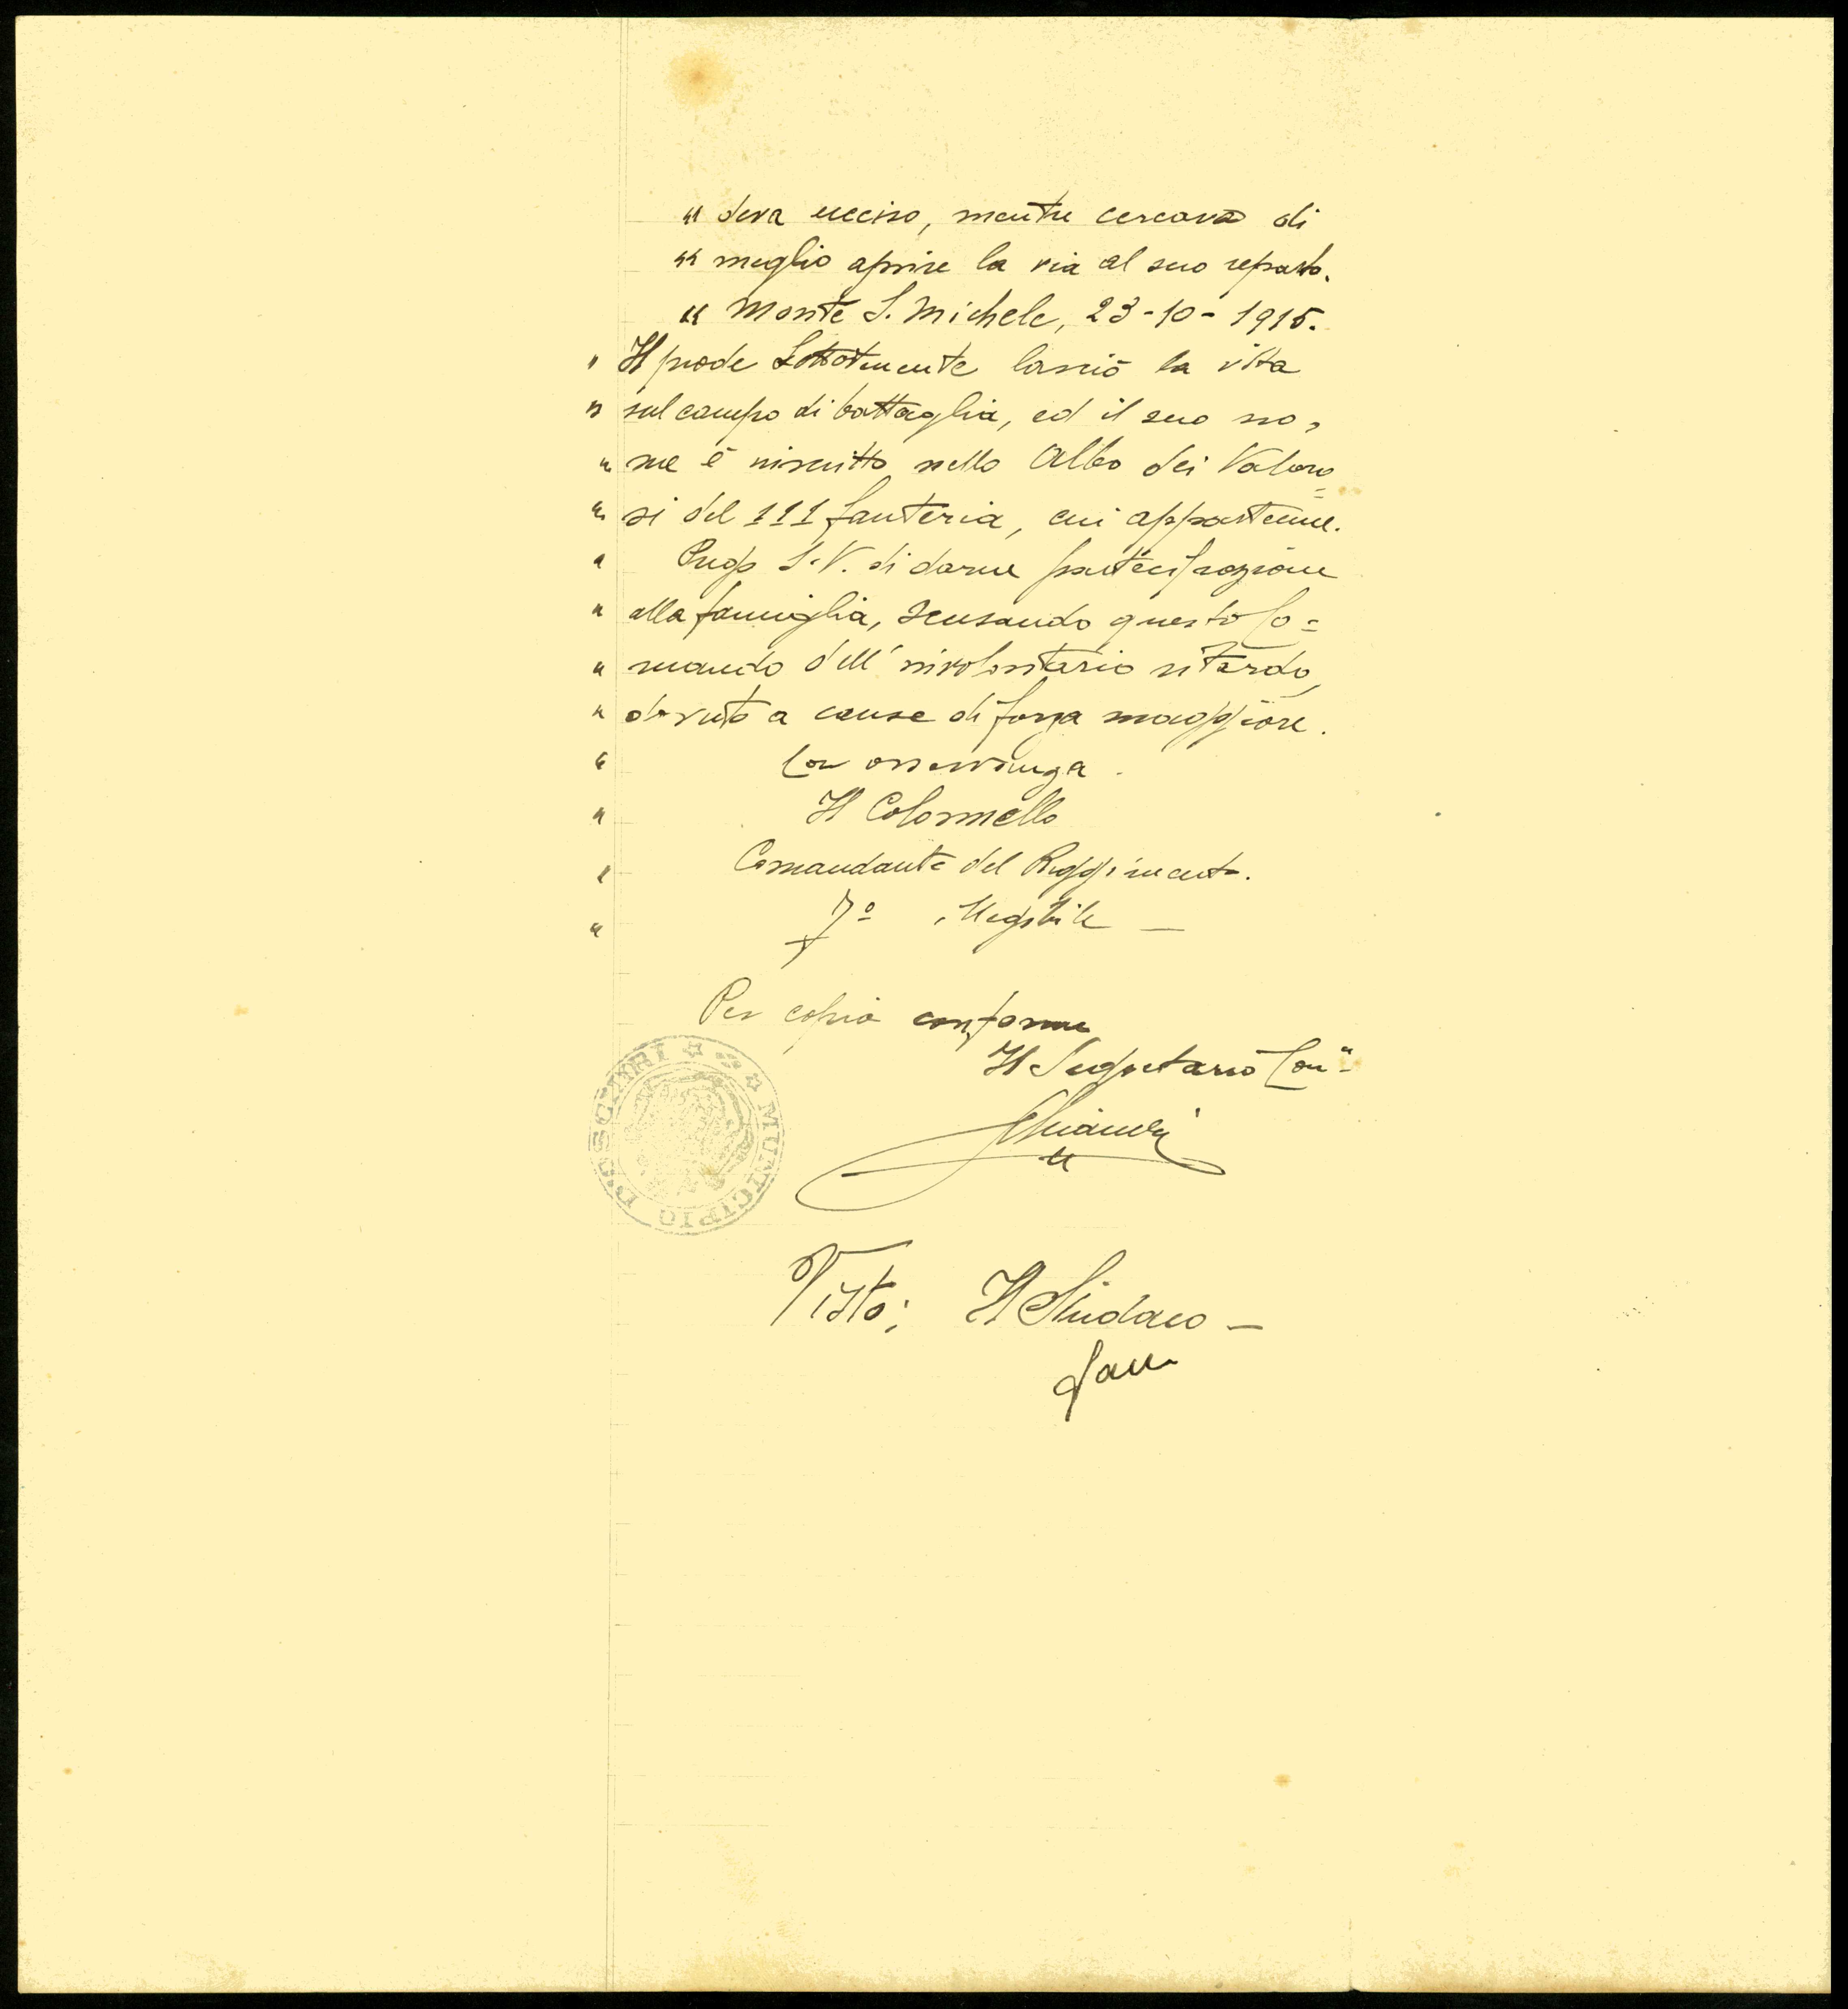 " deva ucciso, mentre cercava di
" meglio aprire la via al suo reparto.
" Monte S. Michele, 23-10-1915.
" Il prode Sottotenente lasciò la vita
" sul campo di battaglia, ed il suo no=
" me è inscritto nello Albo dei Valoro=
" si del 111 fanteria, cui appartenne.
" Prego S.V. di darne partecipazione
" alla famiglia, scusando questo Co=
" mando dell'involontario ritardo,
" dovuto a cause di forza maggiore.
" Con osservanza.
" Il Colonnello
" Comandante del Reggimento.
" Fo illegibile —
Per copia conforme
Il Segretario Com.
MUNICIPIO D'OSCHIRI
Visto: Il Sindaco —